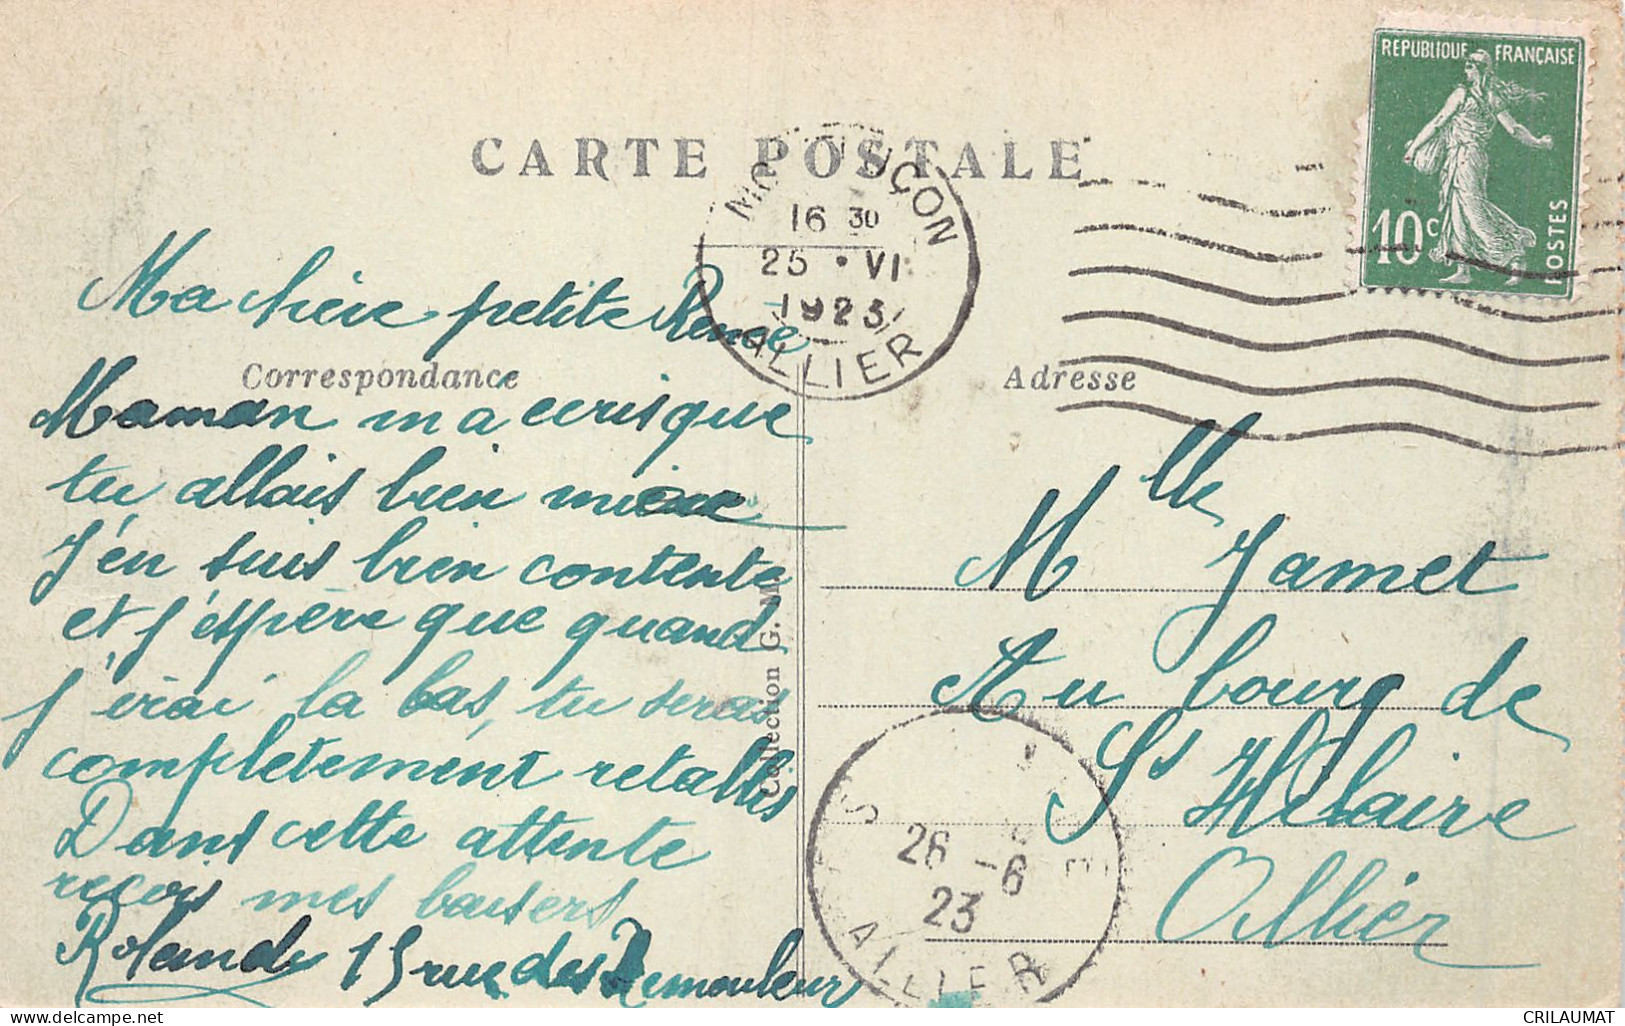 CARTE POSTALE
REPUBLIQUE FRANÇAISE
10c
POSTES
16 30
25 • VI
1923
ALLIER
Ma chère petite Renée
Correspondance
Maman m a ecris que
tu allais bien mieux
J'en suis bien contente
et j'éspère que quand
j'irai la bas, tu seras
completement retablis
Dans cette attente
reçois mes baisers
Rolande 15 rue des Remouleur
Collection G.
Adresse
Mlle Jamet
Au bourg de
St Hilaire
Allier
26 -6
23
ALLIER
CRILAUMAT